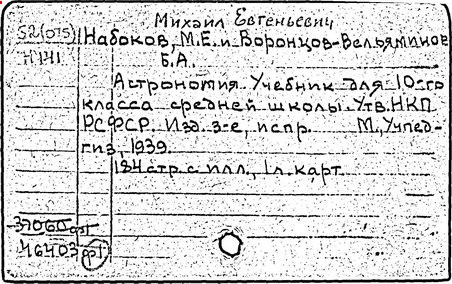 Михаил Евгеньевич
52(075) Набоков, М.Е. и Воронцов-Вельяминов
Н141 Б.А.
Астрономия. Учебник для 10-го
класса средней школы. Утв. НКП
РСФСР. Изд. 3-е, испр. М., Учпед-
гиз, 1939.
184 стр. с илл., 1 л. карт.
37060 ф1
46403 ф1